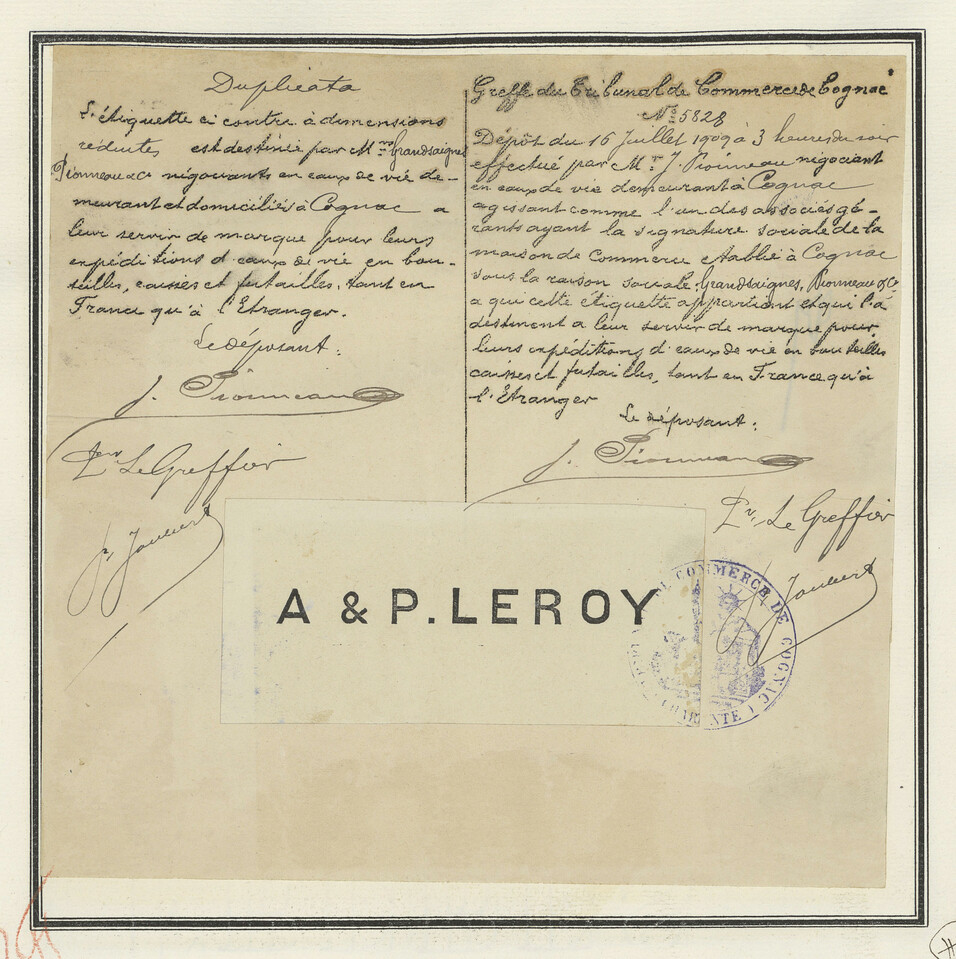 Duplicata
L'étiquette ci contre à dimensions
réduites est destinée par Mrs Grandsaignes
Pionneau & Co négociants en eaux de vie de-
meurant et domiciliés à Cognac a
leur servir de marque pour leurs
expéditions d'eaux de vie en bou-
teilles, caisses et futailles, tant en
France qu'à l'Etranger.
Le déposant:
J. Pionneau
Pr Le Greffier
Greffe du Tribunal de Commerce de Cognac
No 5828
Dépôt du 16 Juillet 1909 à 3 heures du soir
effectué par Mr J. Pionneau négociant
en eaux de vie demeurant à Cognac
agissant comme l'un des associés gé-
rants ayant la signature sociale de la
maison de commerce etablie à Cognac
sous la raison sociale, Grandsaignes, Pionneau & Co
a qui cette étiquette appartient et qui l'a
destinent a leur servir de marque pour
leurs expéditions d'eaux de vie en bouteilles
caisses et futailles, tant en France qu'à
l'Etranger
Le déposant:
J. Pionneau
Pr. Le Greffier
A & P. LEROY
COMMERCE DE COGNAC